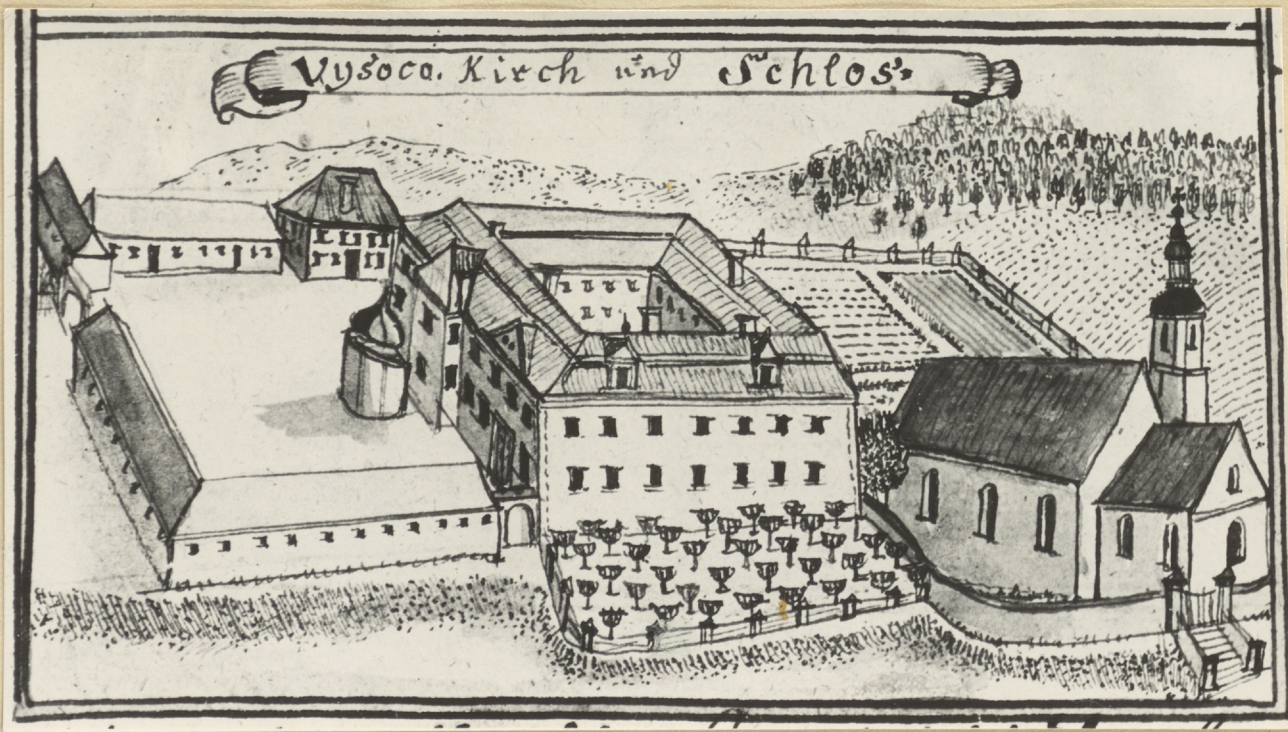 Vysoca. Kirch und Schlos